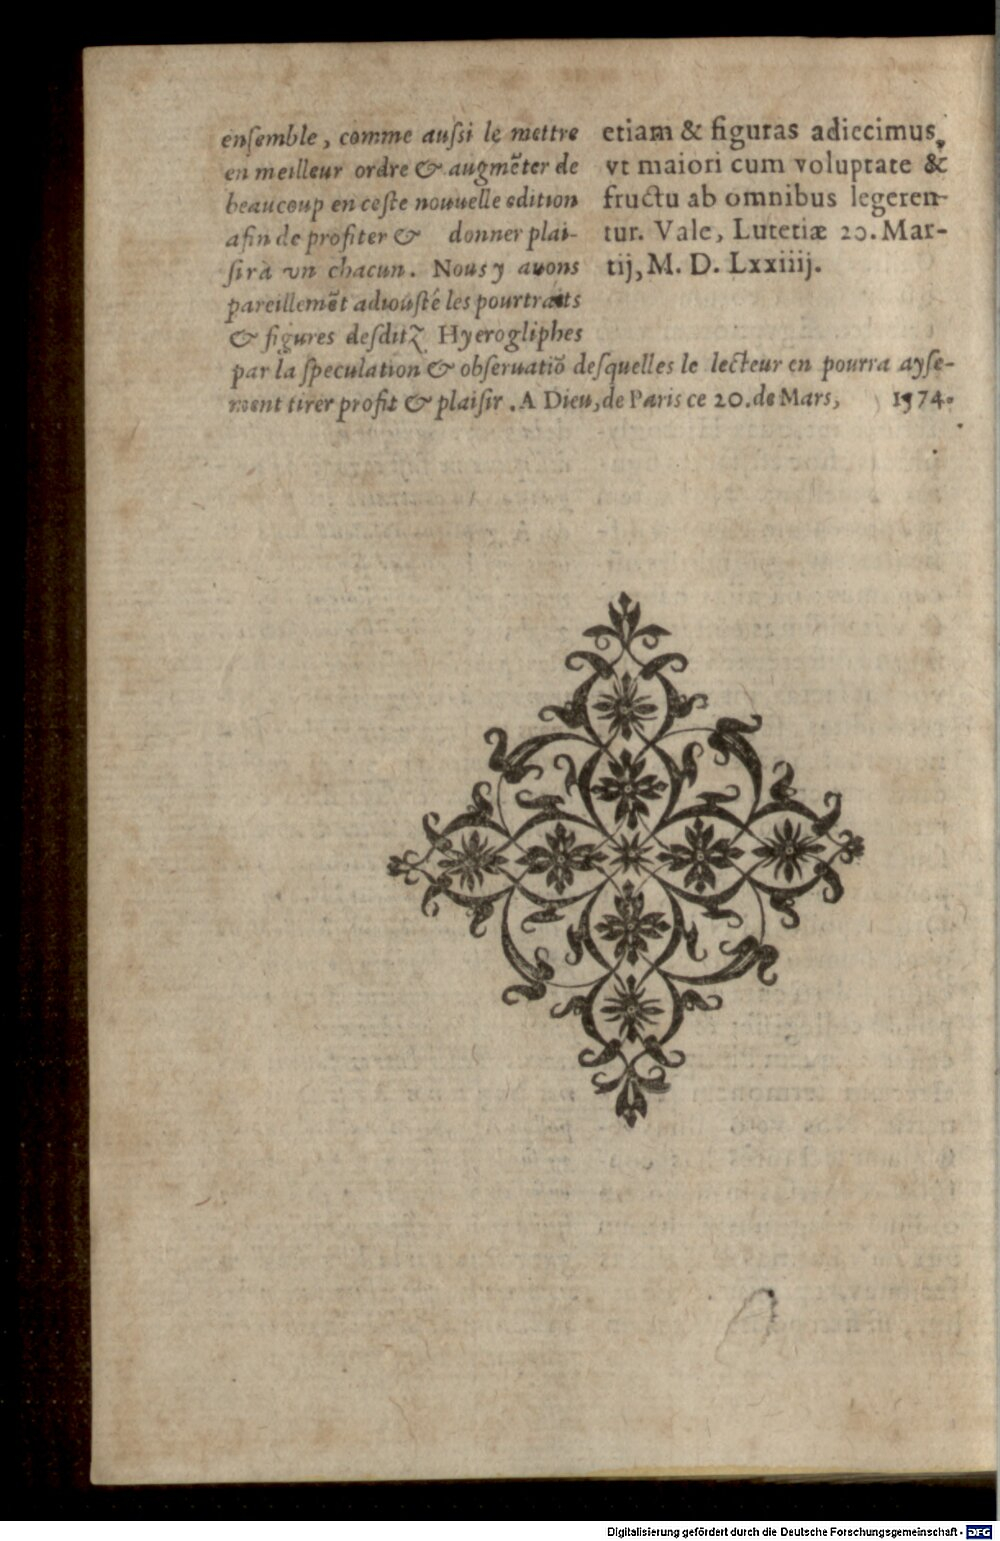 enſemble, comme auſsi le mettre
en meilleur ordre & augmẽter de
beaucoup en ceſte nouuelle edition
afin de profiter & donner plai-
ſir à vn chacun. Nous y auons
pareillemẽt adiouſté les pourtraits
& figures deſditz Hyerogliphes
par la ſpeculation & obſeruatiõ deſquelles le lecteur en pourra ayſe-
ment tirer profit & plaiſir. A Dieu, de Paris ce 20. de Mars, 1574.
etiam & figuras adiecimus,
vt maiori cum voluptate &
fructu ab omnibus legeren-
tur. Vale, Lutetiæ 20. Mar-
tij, M. D. Lxxiiij.
Digitalisierung gefördert durch die Deutsche Forschungsgemeinschaft - DFG